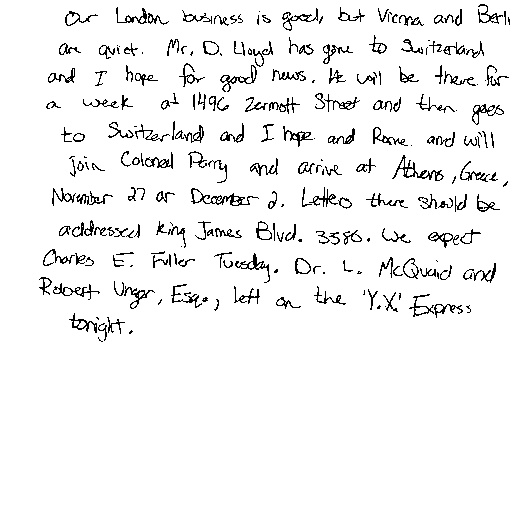 Our London business is good, but Vienna and Berli
are quiet. Mr. D. Lloyd has gone to Switzerland
and I hope for good news. He will be there for
a week at 1496 Zermott Street and then goes
to Switzerland and I hope and Rome and will
join Colonel Parry and arrive at Athens, Greece,
November 27 or December 2. Letters there should be
addressed King James Blvd. 3586. We expect
Charles E. Fuller Tuesday. Dr. L. McQuaid and
Robert Unger, Esq., left on the 'Y.X.' Express
tonight.